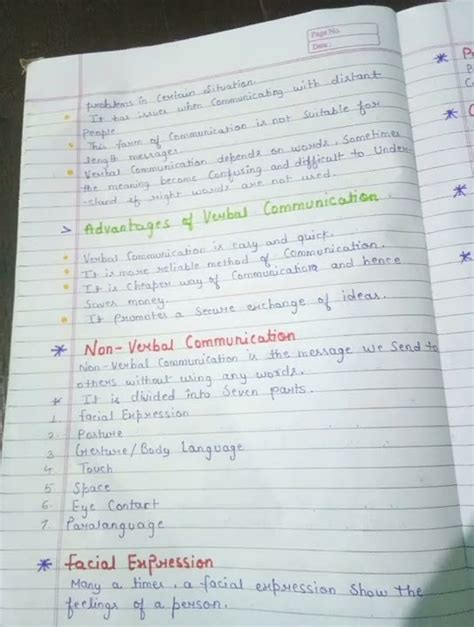 Page No.
Date:
problems in certain situation.
It has issues when communicating with distant
people
This form of communication is not suitable for
length messages.
Verbal communication depends on words, Sometimes
the meaning become confusing and difficult to under-
-stand if right words are not used.
> Advantages of Verbal Communication.
Verbal Communication is easy and quick.
It is more reliable method of Communication.
It is cheaper way of Communication and hence
saves money.
It promotes a secure exchange of ideas.
* Non-Verbal Communication
Non-Verbal Communication is the message we send to
others without using any words.
* It is divided into Seven parts.
1. facial Expression
2. Posture
3 Gesture/Body Language
4. Touch
5 Space
6. Eye Contact
7. Paralanguage
* facial Expression
Many a times, a facial expression show the
feelings of a person.